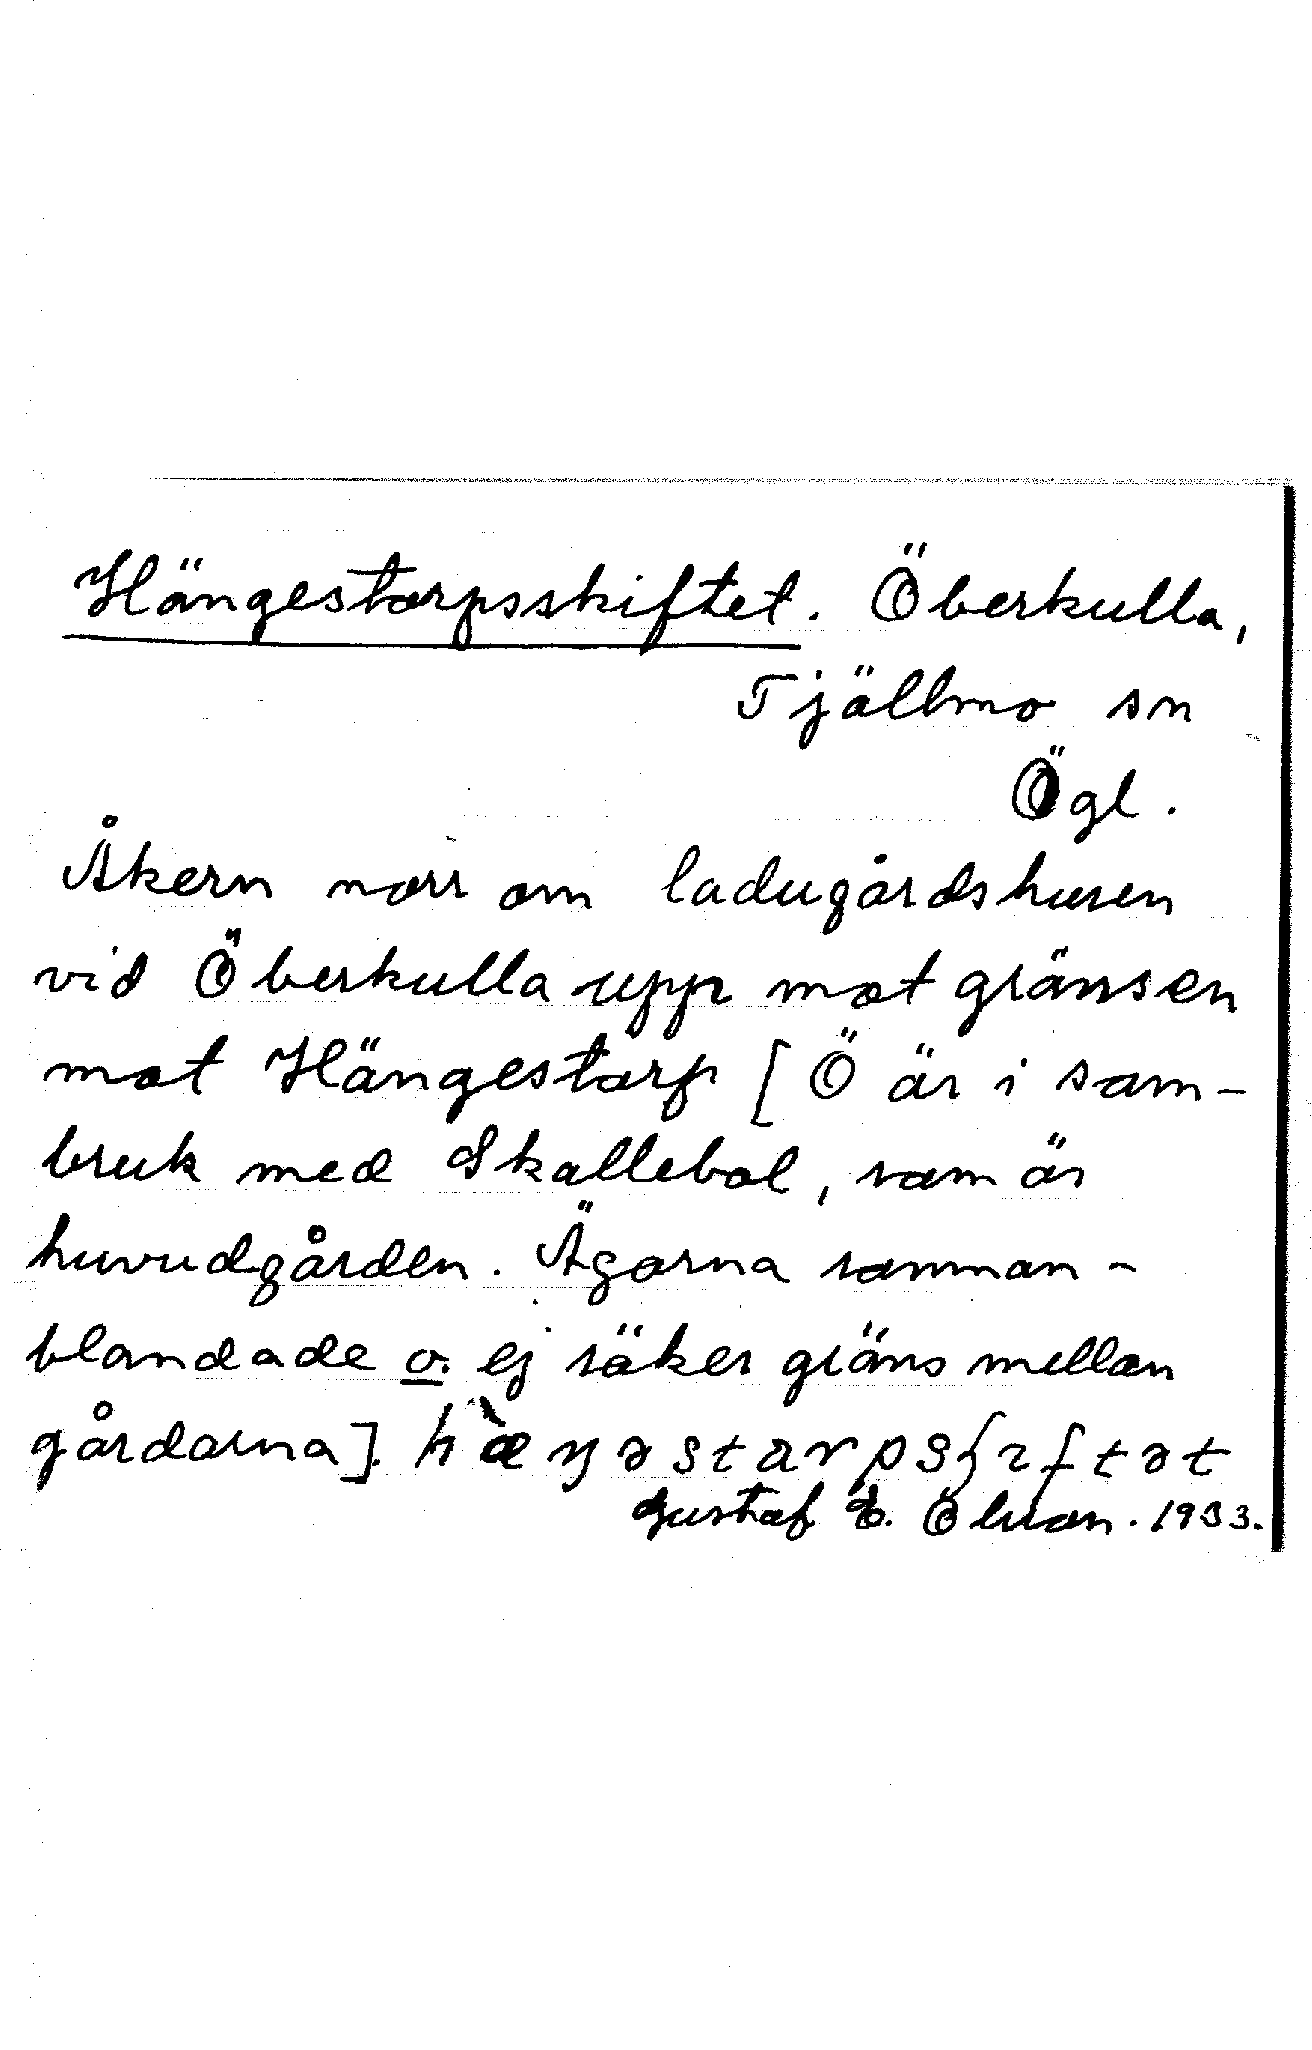 Hängestorpsskiftet. Överkulla,
Tjällmo sn
Ögl.
Åkern norr om ladugårdshusen
vid Överkulla upp mot gränsen
mot Hängestorp [Ö är i sam-
bruk med Skallebol, som är
huvudgården. Ägorna samman-
blandade o. ej säker gräns mellan
gårdarna].
Gustaf E. Olson. 1933.